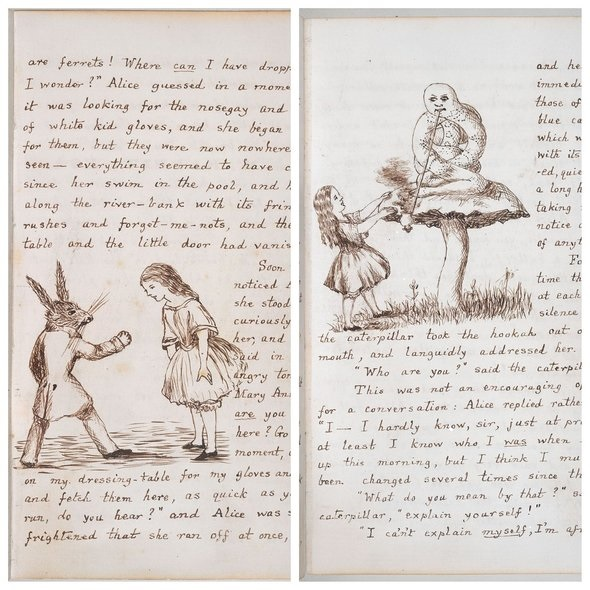 are ferrets! Where can I have dropp
I wonder?" Alice guessed in a mome
it was looking for the nosegay and
of white kid gloves, and she began
for them, but they were now nowhere
seen— everything seemed to have c
since her swim in the pool, and h
along the river-bank with its frin
rushes and forget-me-nots, and the
table and the little door had vanis
Soon
noticed A
she stood
curiously
her, and
said in
angry ton
Mary Ann
are you
here? Go
moment,
on my dressing-table for my gloves an
and fetch them here, as quick as y
run, do you hear?" and Alice was s
frightened that she ran off at once,
and he
immedi
those of
blue ca
which w
with its
-ed, quie
a long h
taking
notice o
of anyt
Fo
time th
at each
silence
the caterpillar took the hookah out o
mouth, and languidly addressed her.
"Who are you?" said the caterpil
This was not an encouraging o
for a conversation: Alice replied rathe
"I— I hardly know, sir, just at pr
at least I know who I was when
up this morning, but I think I mu
been changed several times since th
"What do you mean by that?" sa
caterpillar, "explain yourself!"
"I can't explain myself, I'm afr